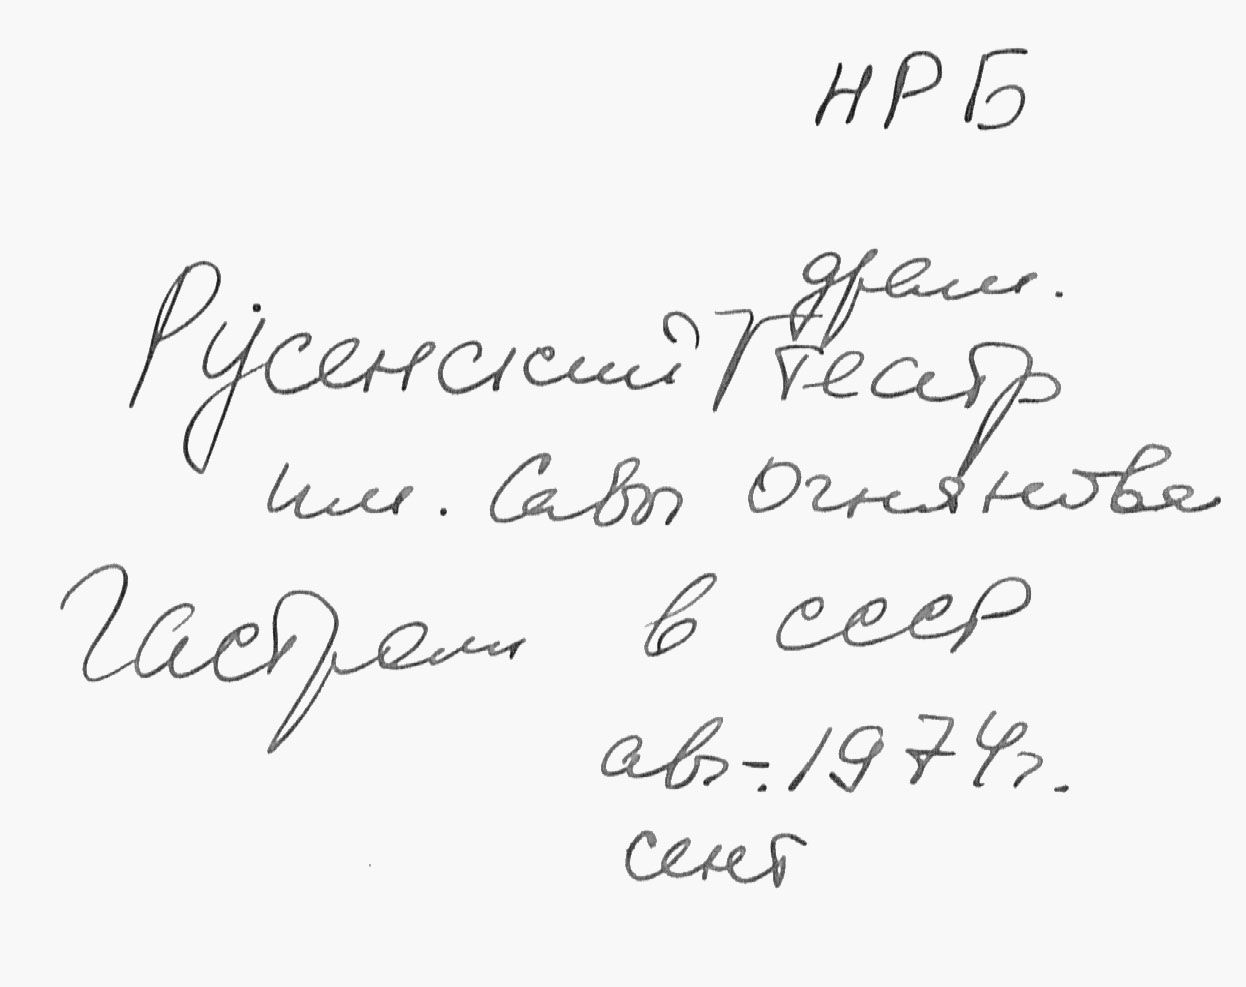 НРБ
драм.
Русенский театр
им. Савы Огнянова
Гастроли в СССР
авг-. 1974г.
сент